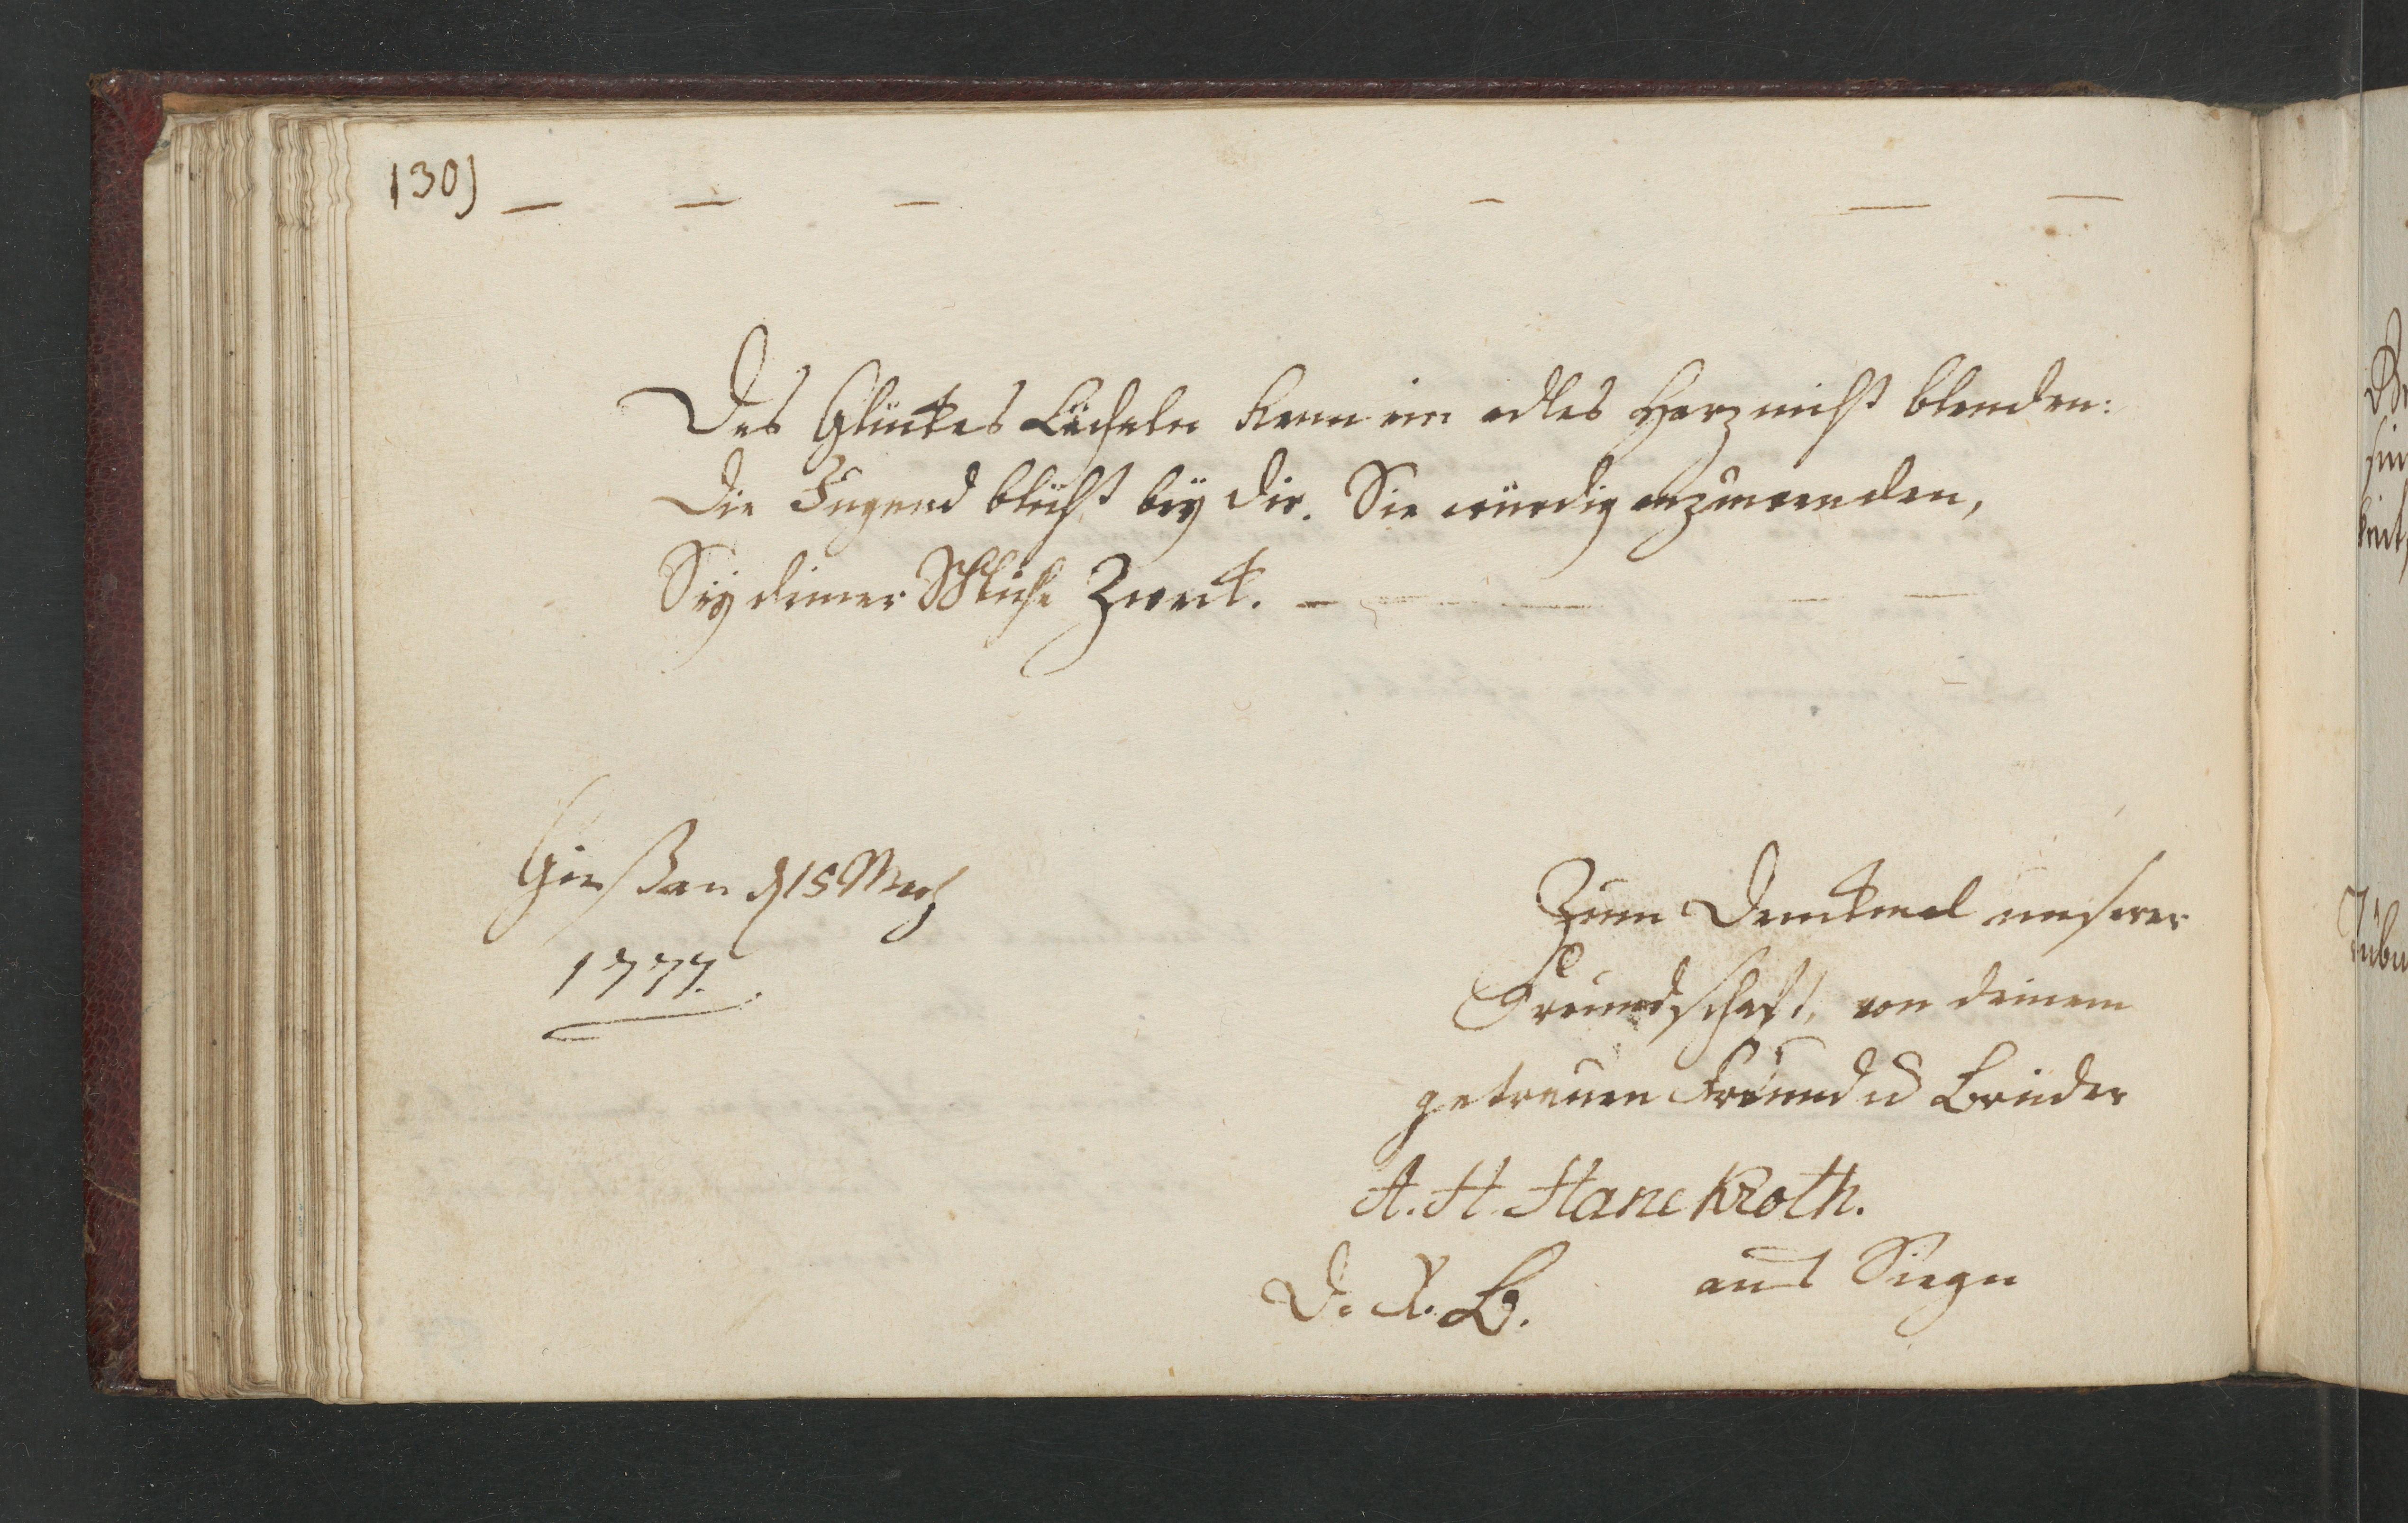 130)
Des Glückes Lächeln kann ein edles Herz nicht blenden:
Die Tugend blüht bey dir. Sie würdig anzuwenden,
Sey deiner Pflicht Zweck.
Giessen d 15 Merz
1777.
Zum Denckmal unserer
Freundschaft, von deinem
getreuen Freund u Bruder
A. H. Hanekroth.
D. A. B.
aus Siegen